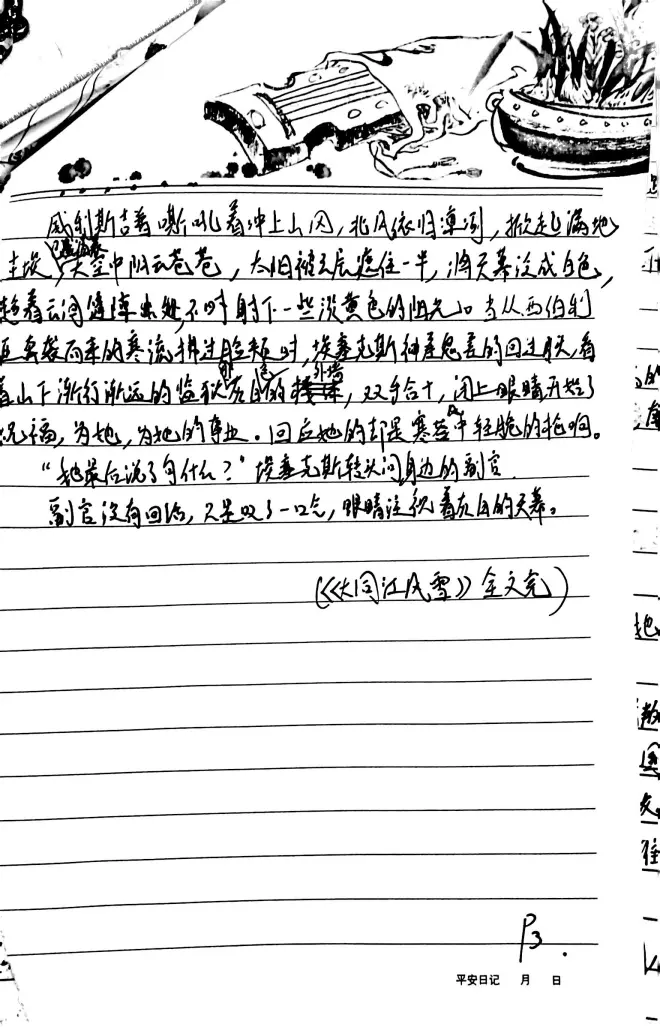 威利斯吉普嘶吼着冲上山冈，北风依旧凛冽，掀起满地
尘埃，天空中阴云苍苍，太阳被云层遮住一半，将天幕染成白色，
趁着云间缝隙出处，不时射下一些淡黄色的阳光。当从西伯利
亚袭来的寒流掠过脸颊时，埃塞克斯神差鬼差的回过头，看
着山下渐行渐远的监狱灰白的外墙，双手合十，闭上眼睛开始了
祝福，为她，为她的事业。回应她的却是寒空中轻脆的枪响。
“她最后说了句什么？”埃塞克斯转头问身边的副官
副官没有回话，只是叹了一口气，眼睛注视着灰白的天幕。
（《大同江风雪》全文完）
P3.
平安日记 月 日